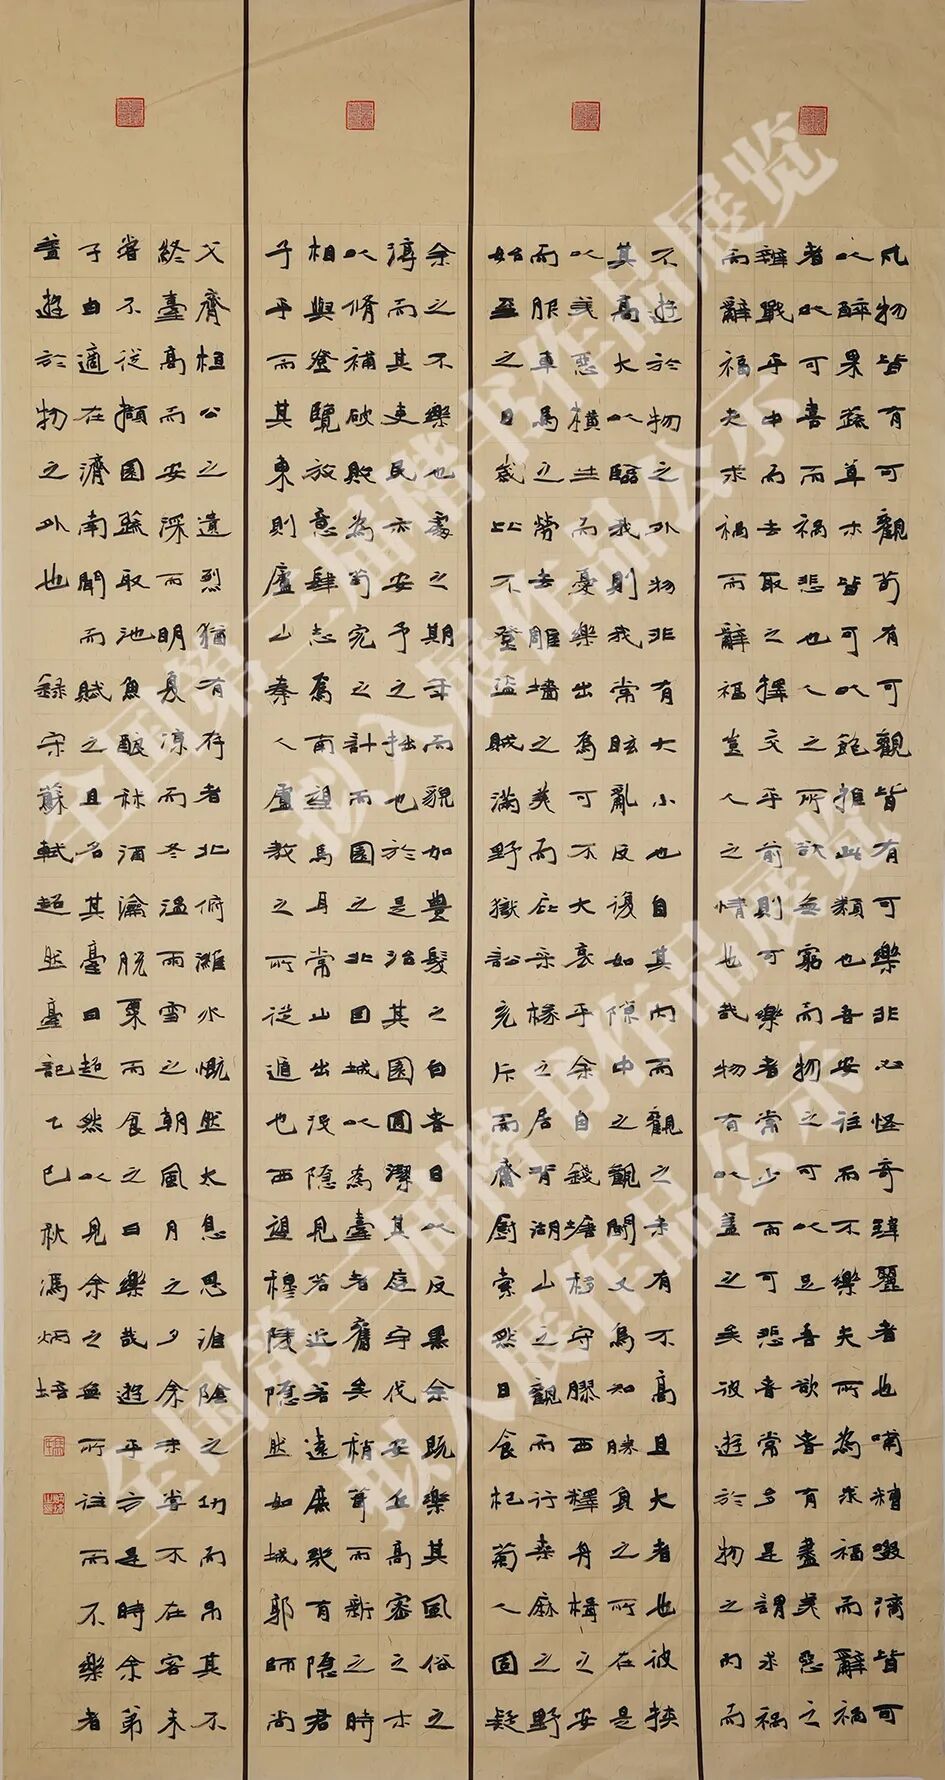 凡物皆有可觀苟有可觀皆有可樂非必怪奇瑋麗者也餔糟啜漓皆可
以醉果蔬草木皆可以飽推此類也吾安往而不樂夫所為求福而辭禍
者以可喜而禍悲也人之所欲無窮而物之可以足吾欲者有盡美惡之
辨戰乎中而去取之擇交乎前則可樂者常少而可悲者常多是謂求禍
而辭福夫求禍而辭福豈人之情也哉物有以蓋之矣彼遊於物之內而
不遊於物之外物非有大小也自其內而觀之未有不高且大者也彼挾
其高大以臨我則我常眩亂反復如隙中之觀鬥又烏知勝負之所在是
以美惡橫生而憂樂出焉可不大哀乎余自錢塘移守膠西釋舟楫之安
而服車馬之勞去雕墻之美而庇采椽之居背湖山之觀而行桑麻之野
始至之日歲比不登盜賊滿野獄訟充斥而齋廚索然日食杞菊人固疑
余之不樂也處之期年而貌加豐髮之白者日以反黑余既樂其風俗之
淳而其吏民亦安予之拙也於是治其園圃潔其庭宇伐安丘高密之木
以脩補破敗為苟完之計而園之北因城以為臺者舊矣稍葺而新之時
相與登覽放意肆志焉南望馬耳常山出沒隱見若近若遠庶幾有隱君
子乎而其東則廬山秦人盧敖之所從遁也西望穆陵隱然如城郭師尚
父齊桓公之遺烈猶有存者北俯濰水慨然太息思淮陰之功而弔其不
終臺高而安深而明夏涼而冬溫雨雪之朝風月之夕余未嘗不在客未
嘗不從擷園蔬取池魚釀秫酒瀹脫粟而食之曰樂哉遊乎方是時余弟
子由適在濟南聞而賦之且名其臺曰超然以見余之無所往而不樂者
蓋遊於物之外也 錄宋蘇軾超然臺記乙巳秋馮炳培
全国第三届楷书作品展览
拟入展作品公示
全国第三届楷书作品展览
拟入展作品公示